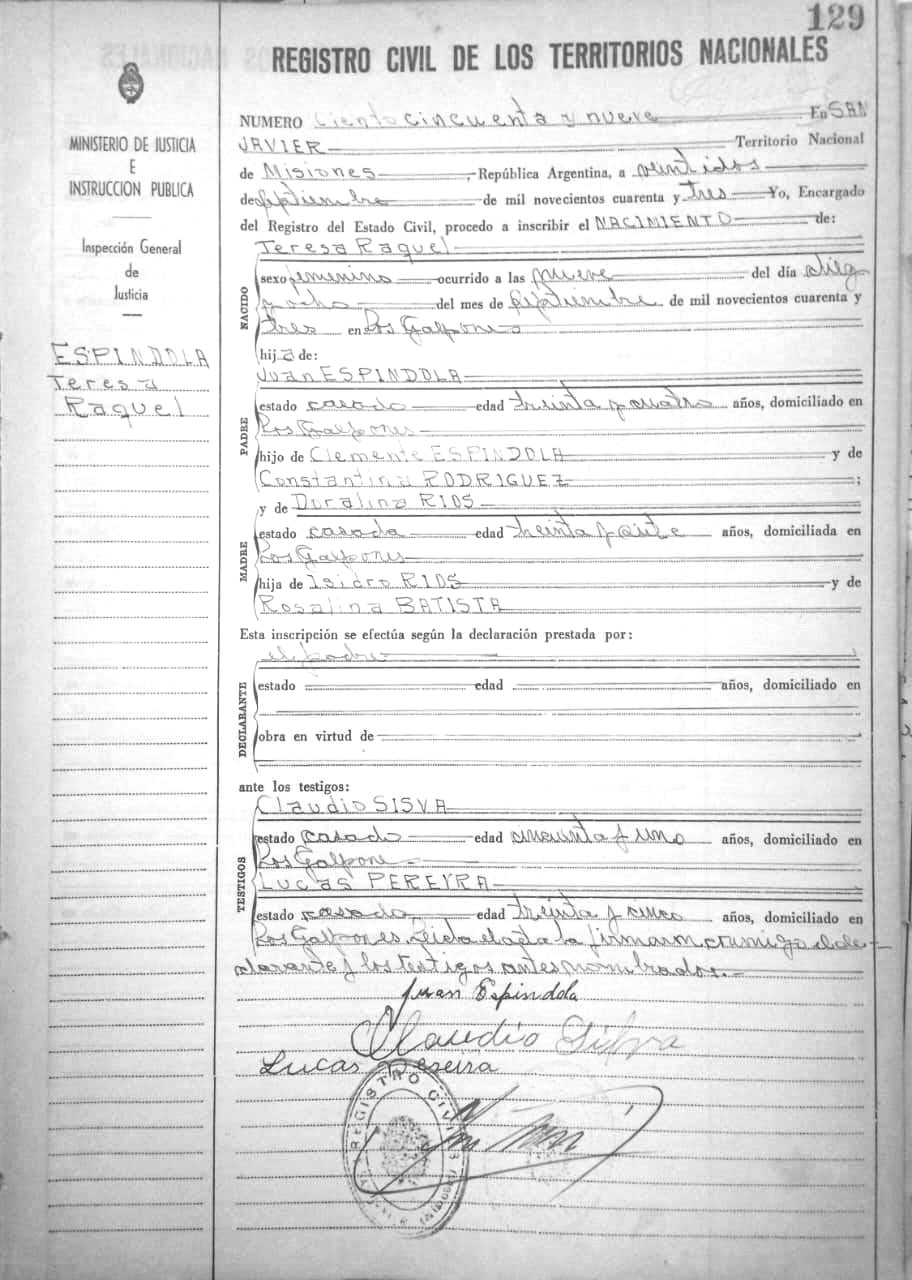 129
REGISTRO CIVIL DE LOS TERRITORIOS NACIONALES
MINISTERIO DE JUSTICIA
E
INSTRUCCION PUBLICA
Inspección General
de
Justicia
ESPINDOLA
Teresa
Raquel
NUMERO Ciento cincuenta y nueve En SAN
JAVIER Territorio Nacional
de Misiones, República Argentina, a veintidos
de septiembre de mil novecientos cuarenta y tres Yo, Encargado
del Registro del Estado Civil, procedo a inscribir el NACIMIENTO de:
Teresa Raquel
NACIDO
sexo femenino ocurrido a las nueve del día diez
y ocho del mes de septiembre de mil novecientos cuarenta y
tres en Los Galpones
hija de:
Juan ESPINDOLA
PADRE
estado casado edad treinta y cuatro años, domiciliado en
Los Galpones
hijo de Clemente ESPINDOLA y de
Constantina RODRIGUEZ;
y de Doralina RIOS
MADRE
estado casada edad treinta y siete años, domiciliada en
Los Galpones
hija de Isidro RIOS y de
Rosalina BATISTA
Esta inscripción se efectúa según la declaración prestada por:
el padre
DECLARANTE
estado edad años, domiciliado en
obra en virtud de
ante los testigos:
Claudio SISVA
TESTIGOS
estado casado edad cincuenta y uno años, domiciliado en
Los Galpones
LUCAS PEREYRA
estado casado edad treinta y cinco años, domiciliado en
Los Galpones. Leida el acta la firmaron conmigo el de-
clarante y los testigos antes nombrados.-
Juan Espindola
Claudio Silva
Lucas Pereira
REGISTRO CIVIL